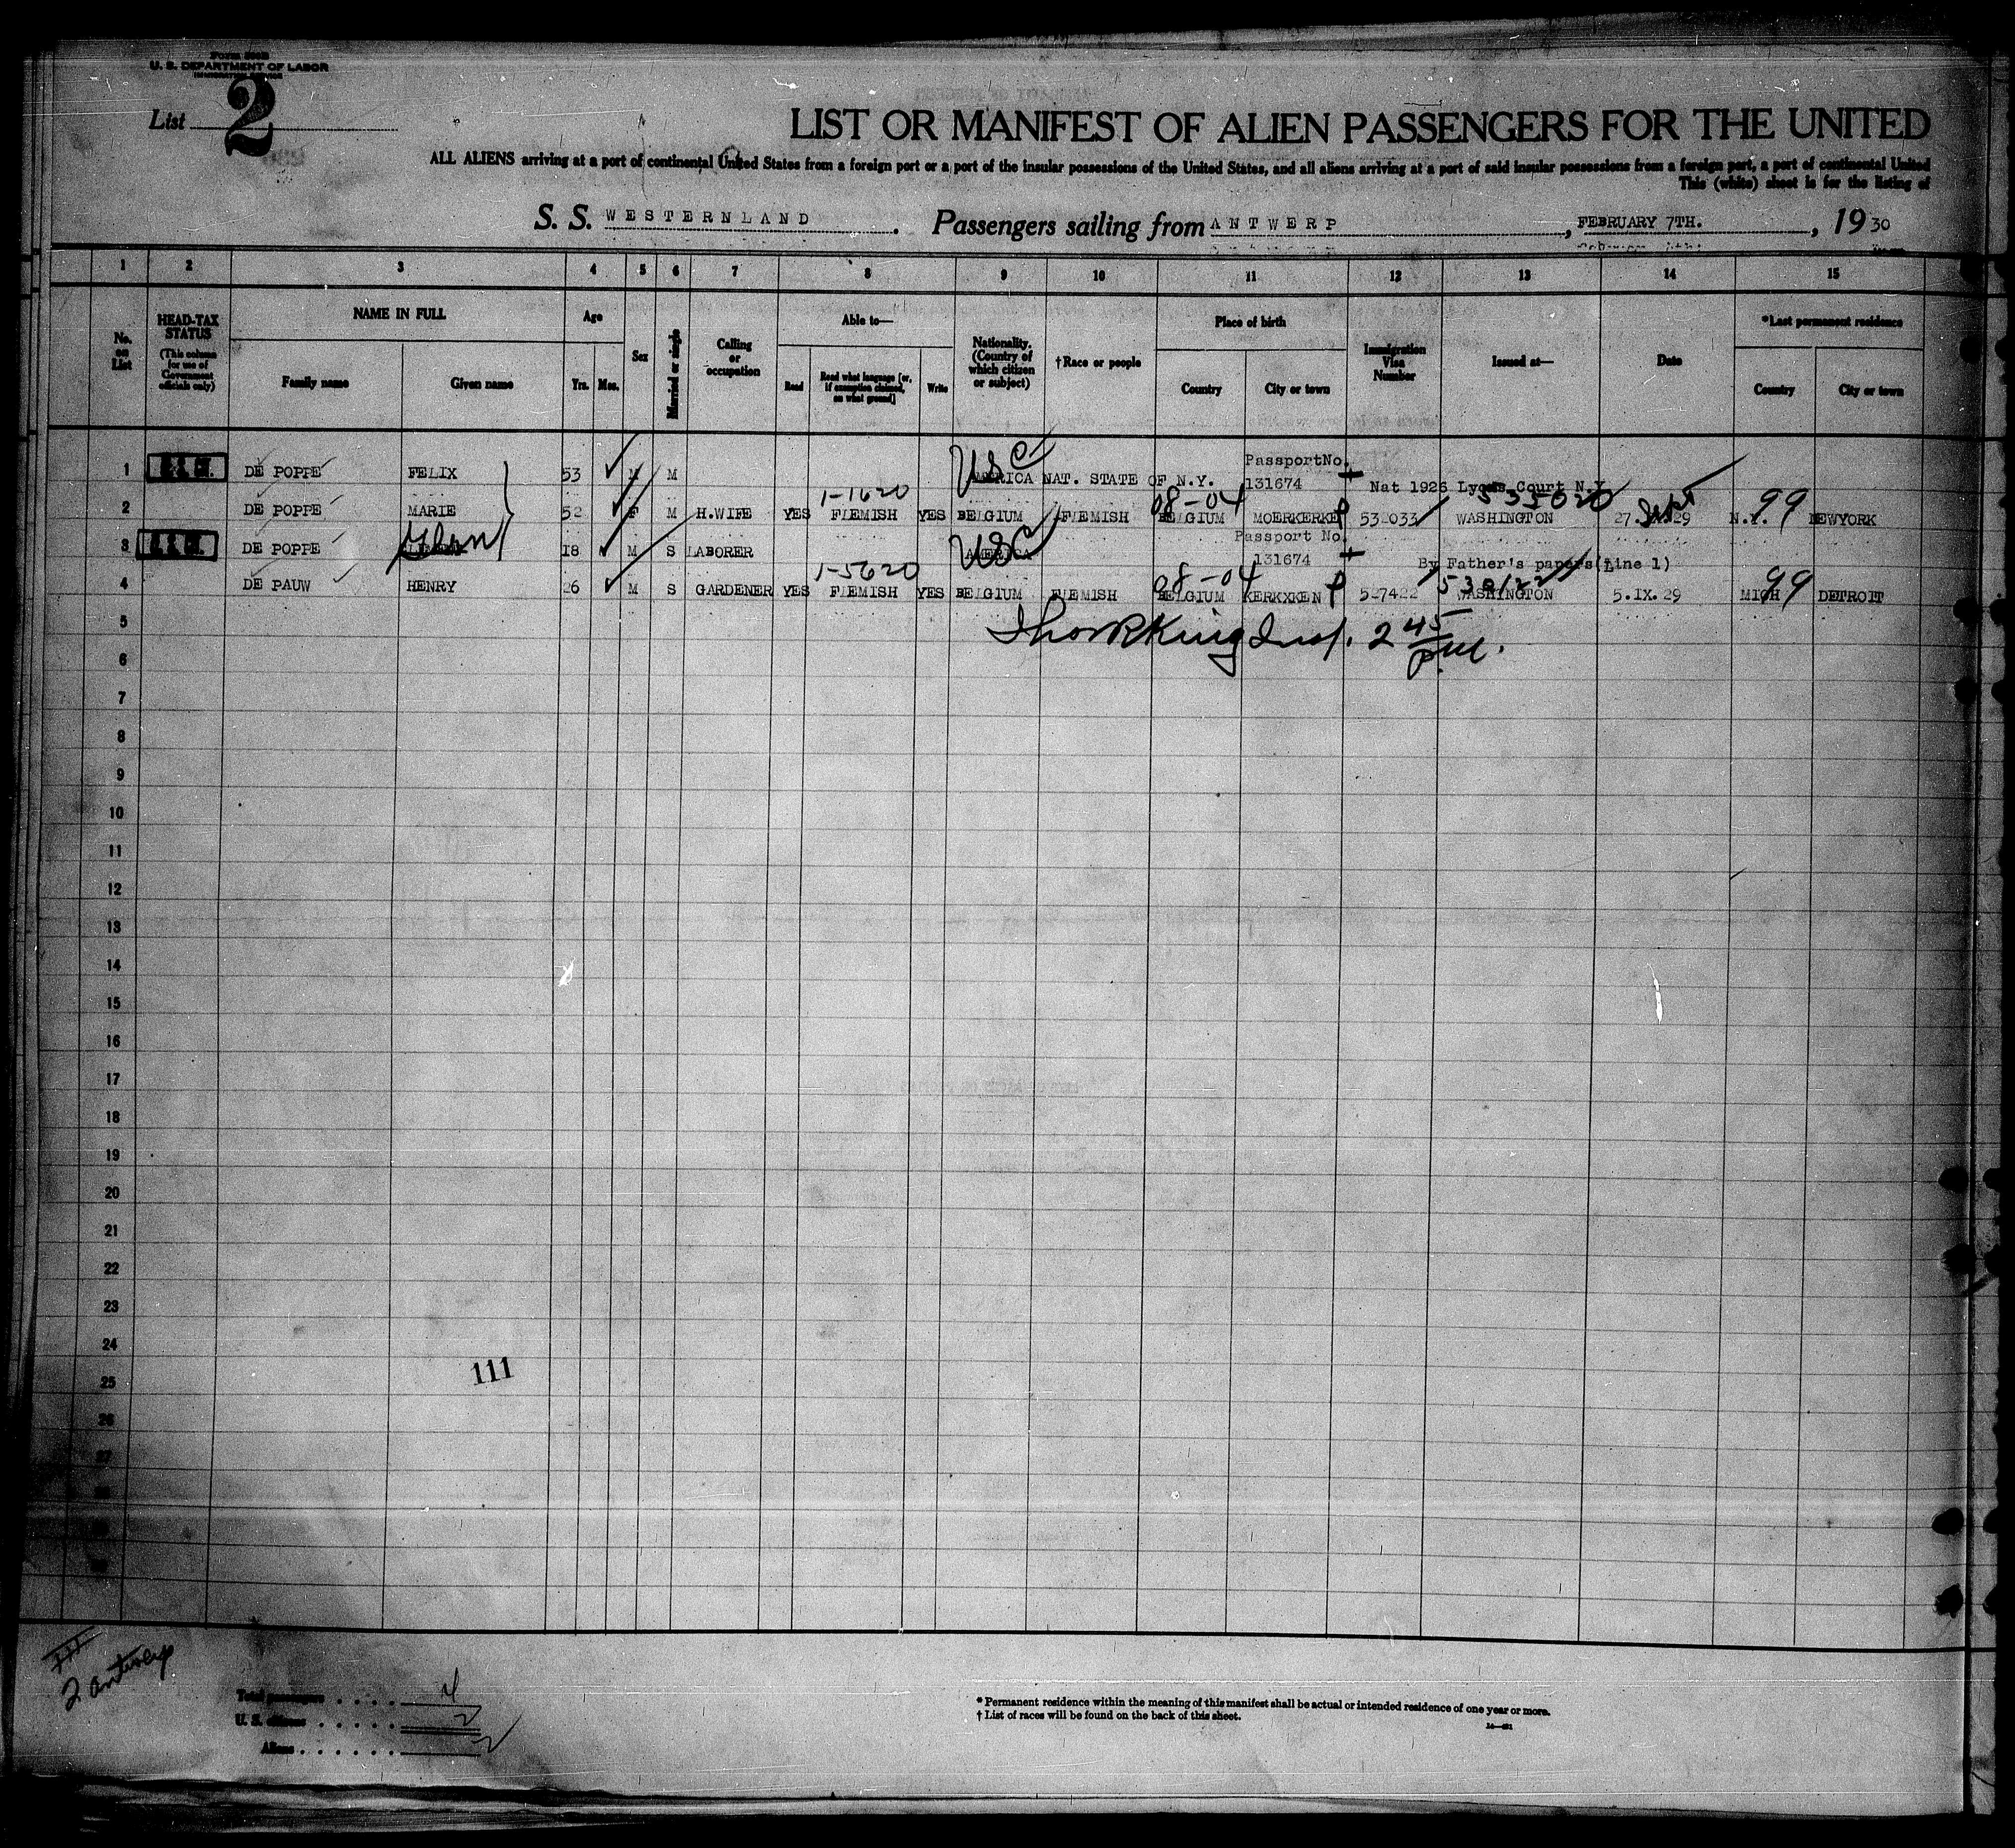 U. S. DEPARTMENT OF LABOR
List 2
LIST OR MANIFEST OF ALIEN PASSENGERS FOR THE UNITED
ALL ALIENS arriving at a port of continental United States from a foreign port or a port of the insular possessions of the United States, and all aliens arriving at a port of said insular possessions from a foreign port, a port of continental United
This (white) sheet is for the listing of
S. S. WESTERNLAND. Passengers sailing from ANTWERP, FEBRUARY 7TH., 1930
1 2 3 4 5 6 7 8 9 10 11 12 13 14 15
No. on List
HEAD-TAX STATUS (This column for use of Government officials only)
NAME IN FULL
Family name Given name
Age
Yrs. Mos.
Sex
Married or single
Calling or occupation
Able to—
Read Read what language [or, if exemption claimed, on what ground] Write
Nationality. (Country of which citizen or subject)
†Race or people
Place of birth
Country City or town
Immigration Visa Number
Issued at—
Date
*Last permanent residence
Country City or town
1 DE POPPE FELIX 53 M M USC AMERICA NAT. STATE OF N.Y. Passport No. 131674 Nat 1926 Lyons Court N.Y.
1-1620 08-04 535020 Sept 99
2 DE POPPE MARIE 52 F M H.WIFE YES FLEMISH YES BELGIUM FLEMISH BELGIUM MOERKERKE 532033 WASHINGTON 27. 29 N.Y. NEWYORK
3 DE POPPE 18 M S LABORER USC AMERICA Passport No. 131674 By Father's papers(Line 1)
1-5620 08-04 99
4 DE PAUW HENRY 26 M S GARDENER YES FLEMISH YES BELGIUM FLEMISH BELGIUM KERKXKEN 527422 WASHINGTON 5.IX.29 MICH DETROIT
5 Insp. 2 45 P.M.
6
7
8
9
10
11
12
13
14
15
16
17
18
19
20
21
22
23
24
111
25
26
27
2 Antwerp
Total passengers . . . . 4
U. S. citizens . . . . . 2
Aliens . . . . . . 2
* Permanent residence within the meaning of this manifest shall be actual or intended residence of one year or more.
† List of races will be found on the back of this sheet.